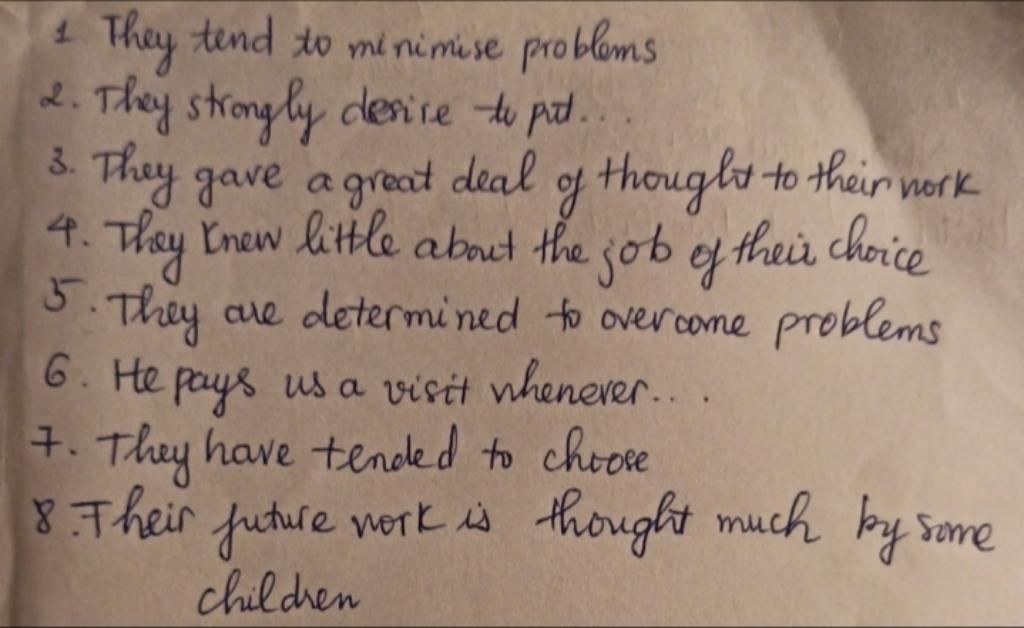 1 They tend to minimise problems
2. They strongly desire to put...
3. They gave a great deal of thought to their work
4. They knew little about the job of their choice
5. They are determined to overcome problems
6. He pays us a visit whenever...
7. They have tended to choose
8. Their future work is thought much by some
children